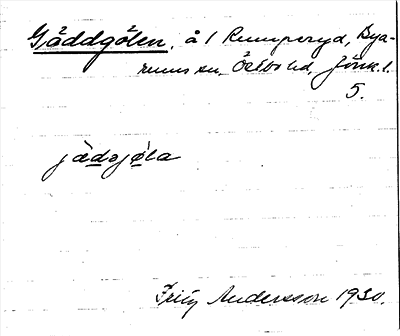 Gäddgölen, å 1 Rumperyd, Bya-
rums sn, Östbo hd, Jönk. l.
5.
jädəjøla
Fritz Andersson 1930.